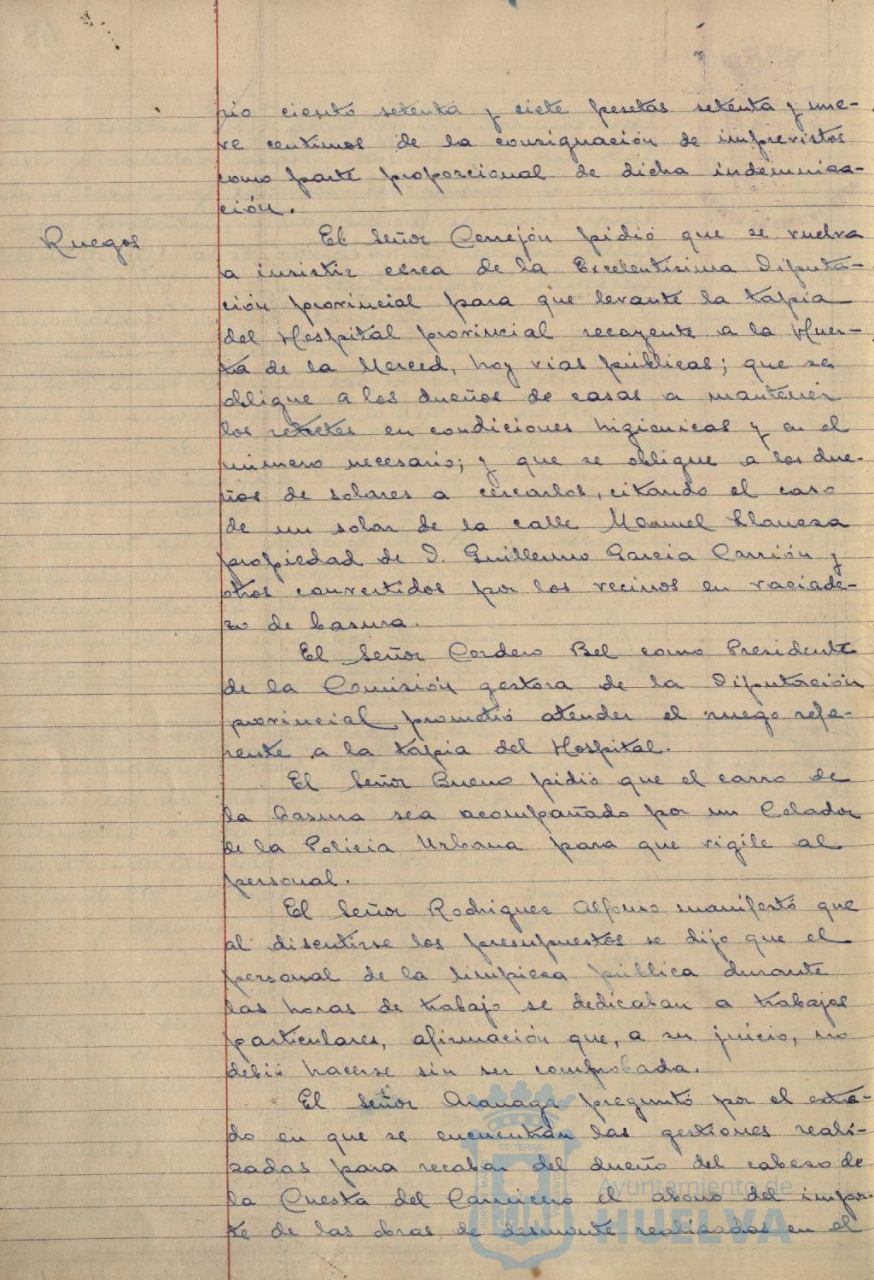 rio ciento setenta y siete pesetas setenta y nue-
ve centimos de la consignación de imprevistos
como parte proporcional de dicha indemniza-
ción.
Ruegos
El Señor Cerrejón pidió que se vuelva
a insistir cerca de la Excelentisima Diputa-
ción provincial para que levante la tapia
del Hospital provincial recayente a la Huer-
ta de la Merced, hoy vias públicas; que se
obligue a los dueños de casas a mantener
los retretes en condiciones higienicas y en el
número necesario; y que se obligue a los due-
ños de solares a cercarlos, citando el caso
de un solar de la calle Manuel Llaneza
propiedad de D. Guillermo Garcia Carrión y
otros convertidos por los vecinos en vaciade-
ro de basura.
El Señor Cordero Bel como Presidente
de la Comisión gestora de la Diputación
provincial prometió atender el ruego refe-
rente a la tapia del Hospital.
El Señor Bueno pidió que el carro de
la basura sea acompañado por un Celador
de la Policia Urbana para que vigile al
personal.
El Señor Rodriguez Alfonso manifestó que
al discutirse los presupuestos se dijo que el
personal de la limpieza pública durante
las horas de trabajo se dedicaban a trabajos
particulares, afirmación que, a su juicio, no
debió hacerse sin ser comprobada.
El Señor Aranaga preguntó por el esta-
do en que se encuentran las gestiones reali-
zadas para recabar del dueño del cabezo de
la Cuesta del Carnicero el abono del impor-
te de las obras de desmonte realizados en el
Ayuntamiento de
HUELVA